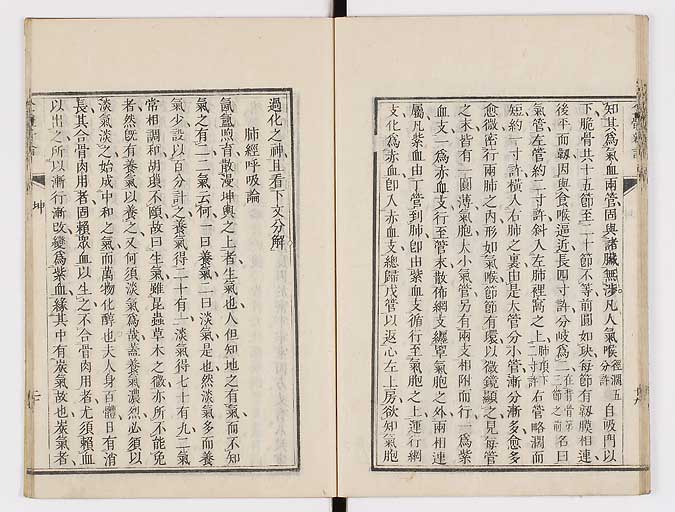 知其爲氣血兩管固與諸臟無涉凡人氣喉徑濶五分許自吸門以
下脆骨共十五節至二十節不等前圓如玦每節有靱膜相連
後平而靱因與食喉逼近長四寸許分岐爲二在背骨第三節之前名曰
氣管左管約二寸許斜入左肺裡髙之上肺頂下二寸許右管略濶而
短約一寸許橫入右肺之裏由是大管分小管漸分漸多愈多
愈微密行兩肺之內形如氣喉節節有環以微鏡顯之見每管
之末皆有一圓薄氣胞大小氣管另有兩支相附而行一爲紫
血支一爲赤血支行至管末散佈網支纏罩氣胞之外兩相連
屬凡紫血由丁管到肺卽由紫血支循行至氣胞之上運行網
支化爲赤血卽入赤血支總歸戊管以返心左上房欲知氣胞
過化之神且看下文分解
肺經呼吸論
氤氳煦育散漫坤輿之上者生氣也人但知地之有氣而不知
氣之有二二氣云何一曰養氣二曰淡氣是也然淡氣多而養
氣少設以百分計之養氣得二十有一淡氣得七十有九二氣
常相調和胡瑣不頤故曰生氣雖昆蟲草木之微亦所不能免
者然旣有養氣以養之又何須淡氣爲哉蓋養氣濃烈必須以
淡氣淡之始成中和之氣而萬物化醇也夫人身百體日有消
長其合骨肉用者固賴眾血以生之不合骨肉用者尤須賴血
以出之所以漸行漸改變爲紫血緣其中有炭氣故也炭氣者
坤